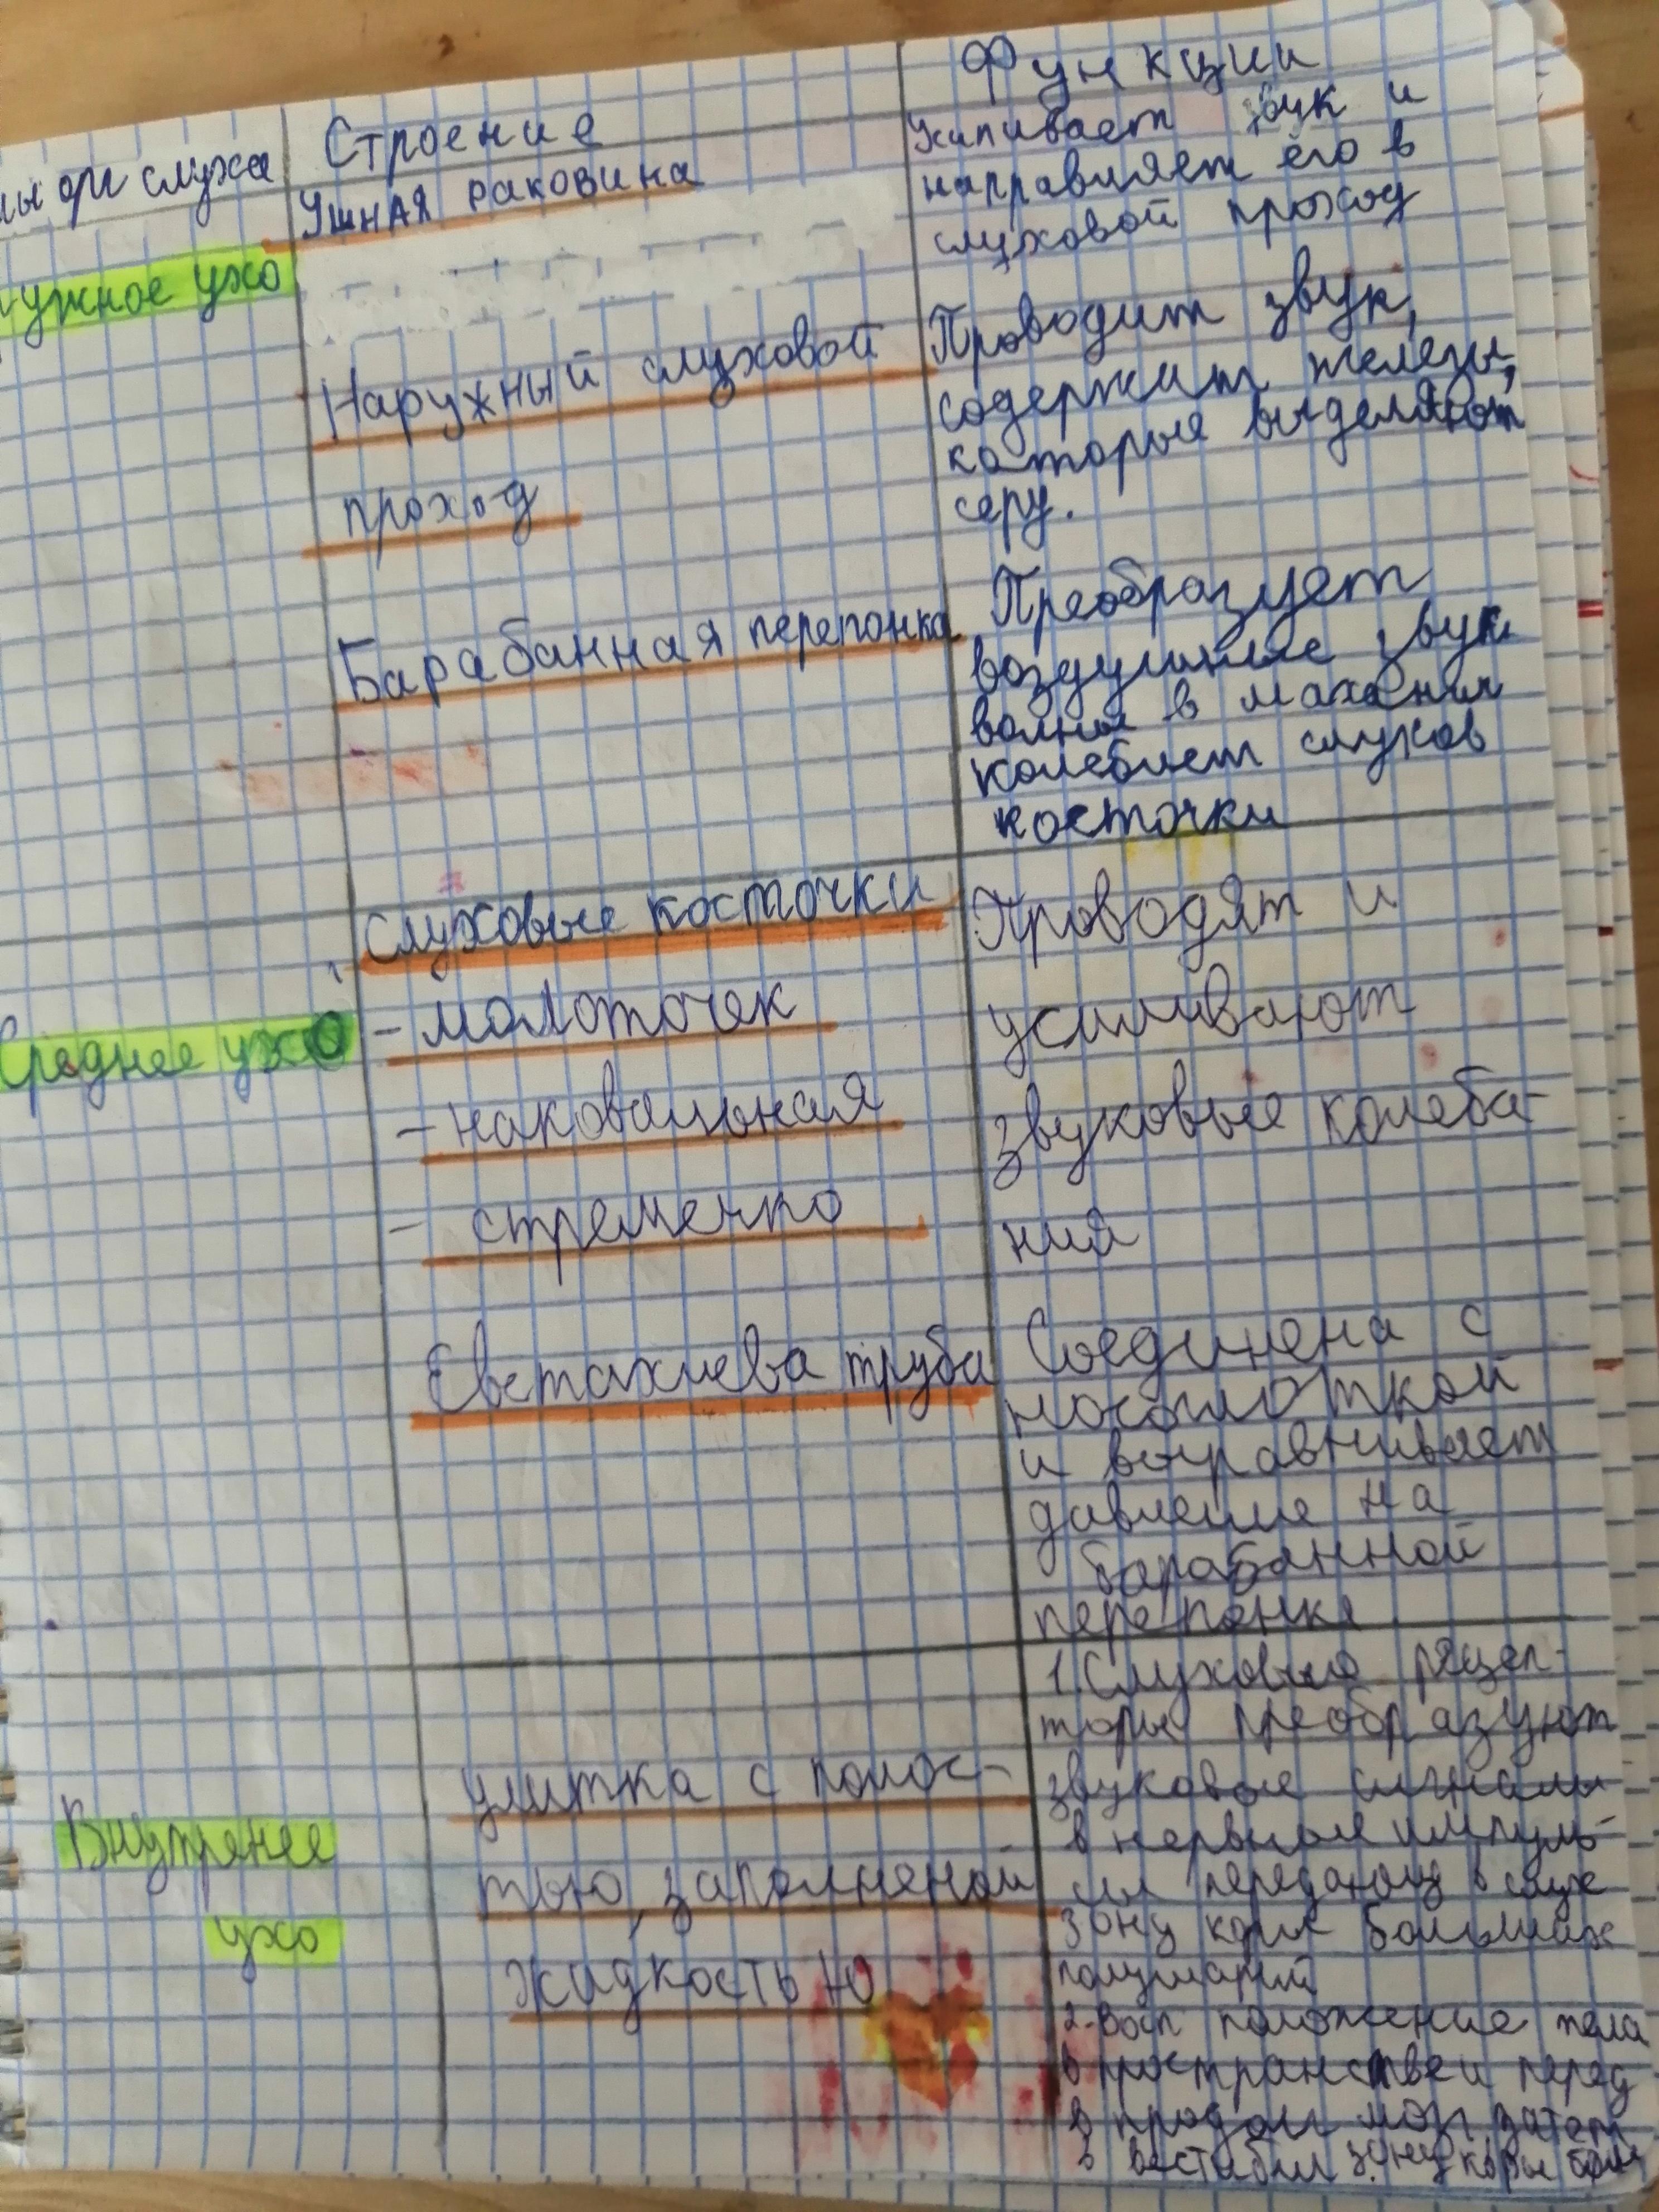 Функции
Строение
орг слуха
Ушная раковина
Усиливает звук и
направляет его в
слуховой проход
ужное ухо
Наружный слуховой
проход
Проводит звук,
содержит железы,
которые выделяют
серу.
Барабанная перепонка
Преобразует
воздушные звук
волны в механич
колеблет слухов
косточки
слуховые косточки
Проводят и
Среднее ухо
- молоточек
усиливают
- наковальная
звуковые колеба-
- стремечко
ния
Евстахиева труба
Соединена с
носоглоткой
и выравнивает
давление на
барабанной
перепонке
Внутренее
ухо
улитка с полос-
тью, заполненой
жидкостью
1. Слуховые рецеп-
торы преобразуют
звуковые сигналы
в нервные импуль-
сы передающ в слух
зону коры больших
полушарий
2. Восп положение тела
в пространстве и перед
в продол мозг затем
в вестибул зону коры боль